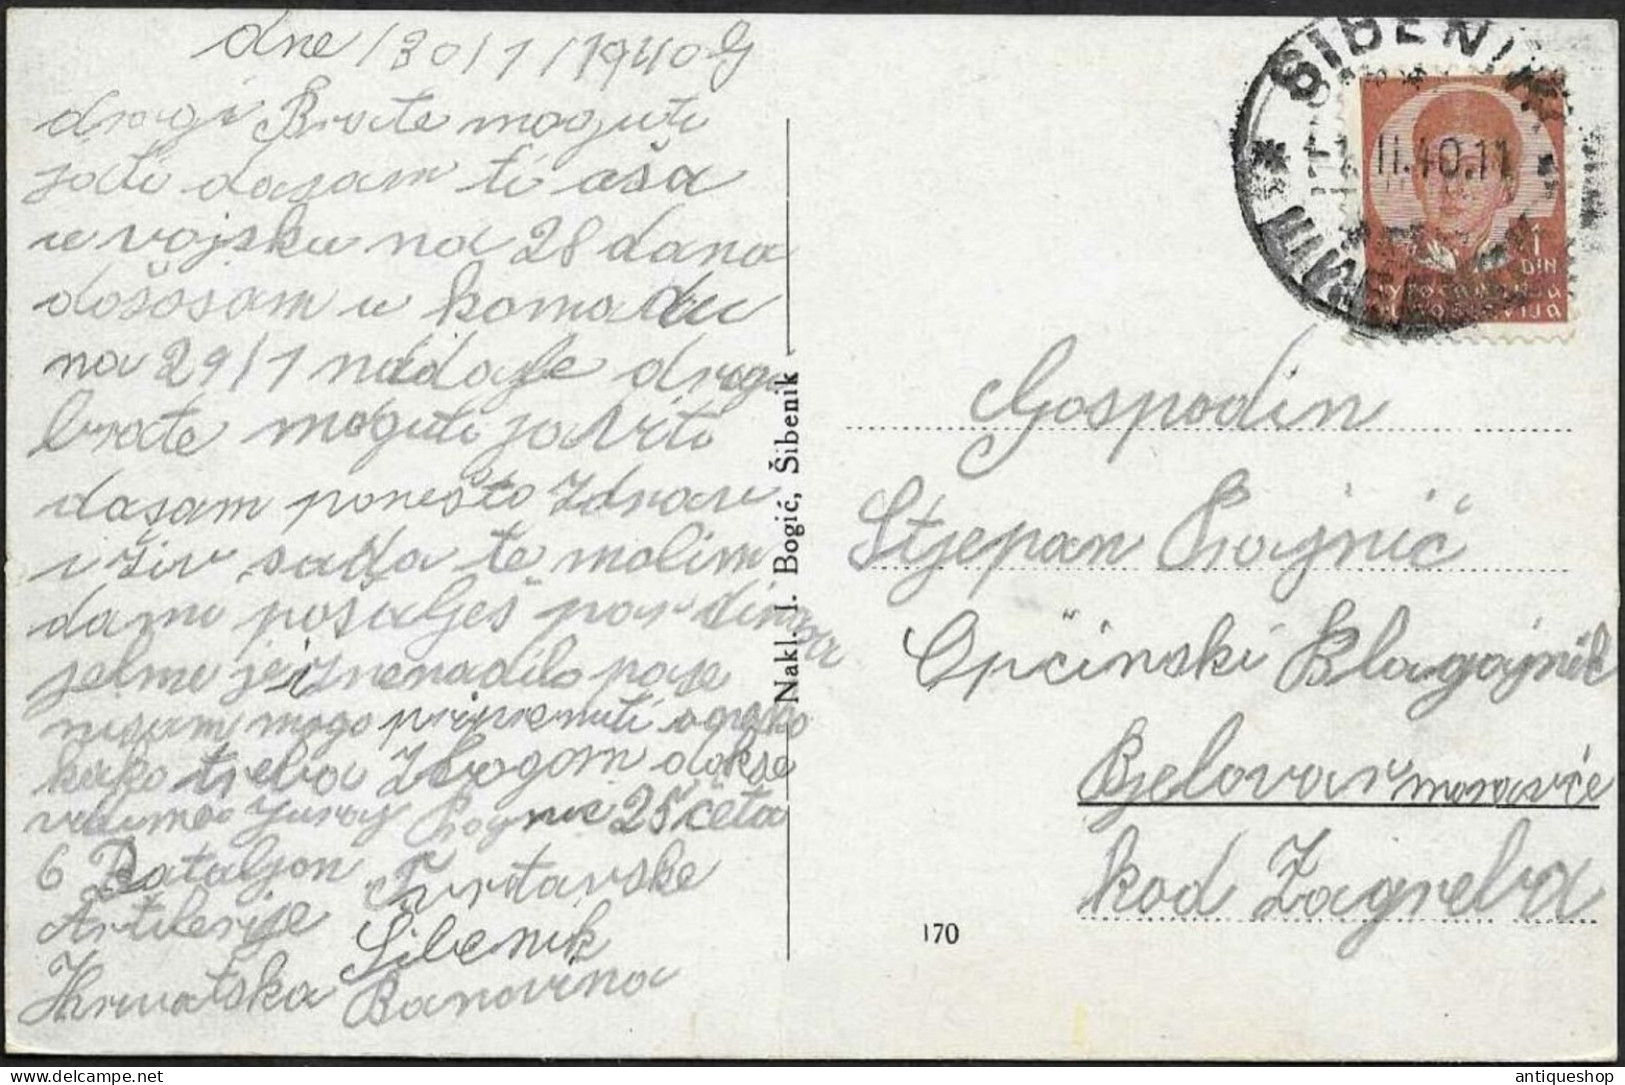 dne /30/1/1940 G
dragi Brate moguti
jati dasam ti aša
u vojsku na 28 dana
došosam u komadu
na 29/1 nadalje drogi
brate moguti javiti
dasam ponešto Zdrav
i živ sada te molim
dami pošalješ par dinara
jelme je iznenadilo pase
nisam mogo pripremiti
kako treba Zbogom dokse
vidimo Juraj 25 četa
6 Bataljon Tvrđavske
Artilerije Šibenik
Hrvatska Banovina
Nakl. I. Bogić, Šibenik
170
ŠIBENIK
II.40.11
1 DIN
Gospodin
Stjepan
Općinski Blagajnik
Bjelovar moravče
kod Zagreba
antiqueshop